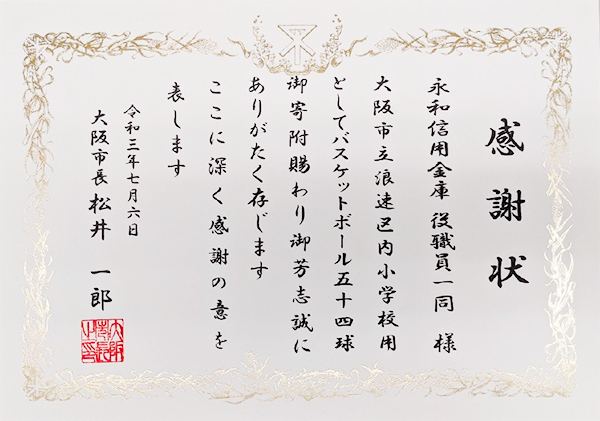 感謝状
永和信用金庫 役職員一同 様
大阪市立浪速区内小学校用
としてバスケットボール五十四球
御寄附賜わり御芳志誠に
ありがたく存じます
ここに深く感謝の意を
表します
令和三年七月六日
大阪市長 松井 一郎
大阪市長之印